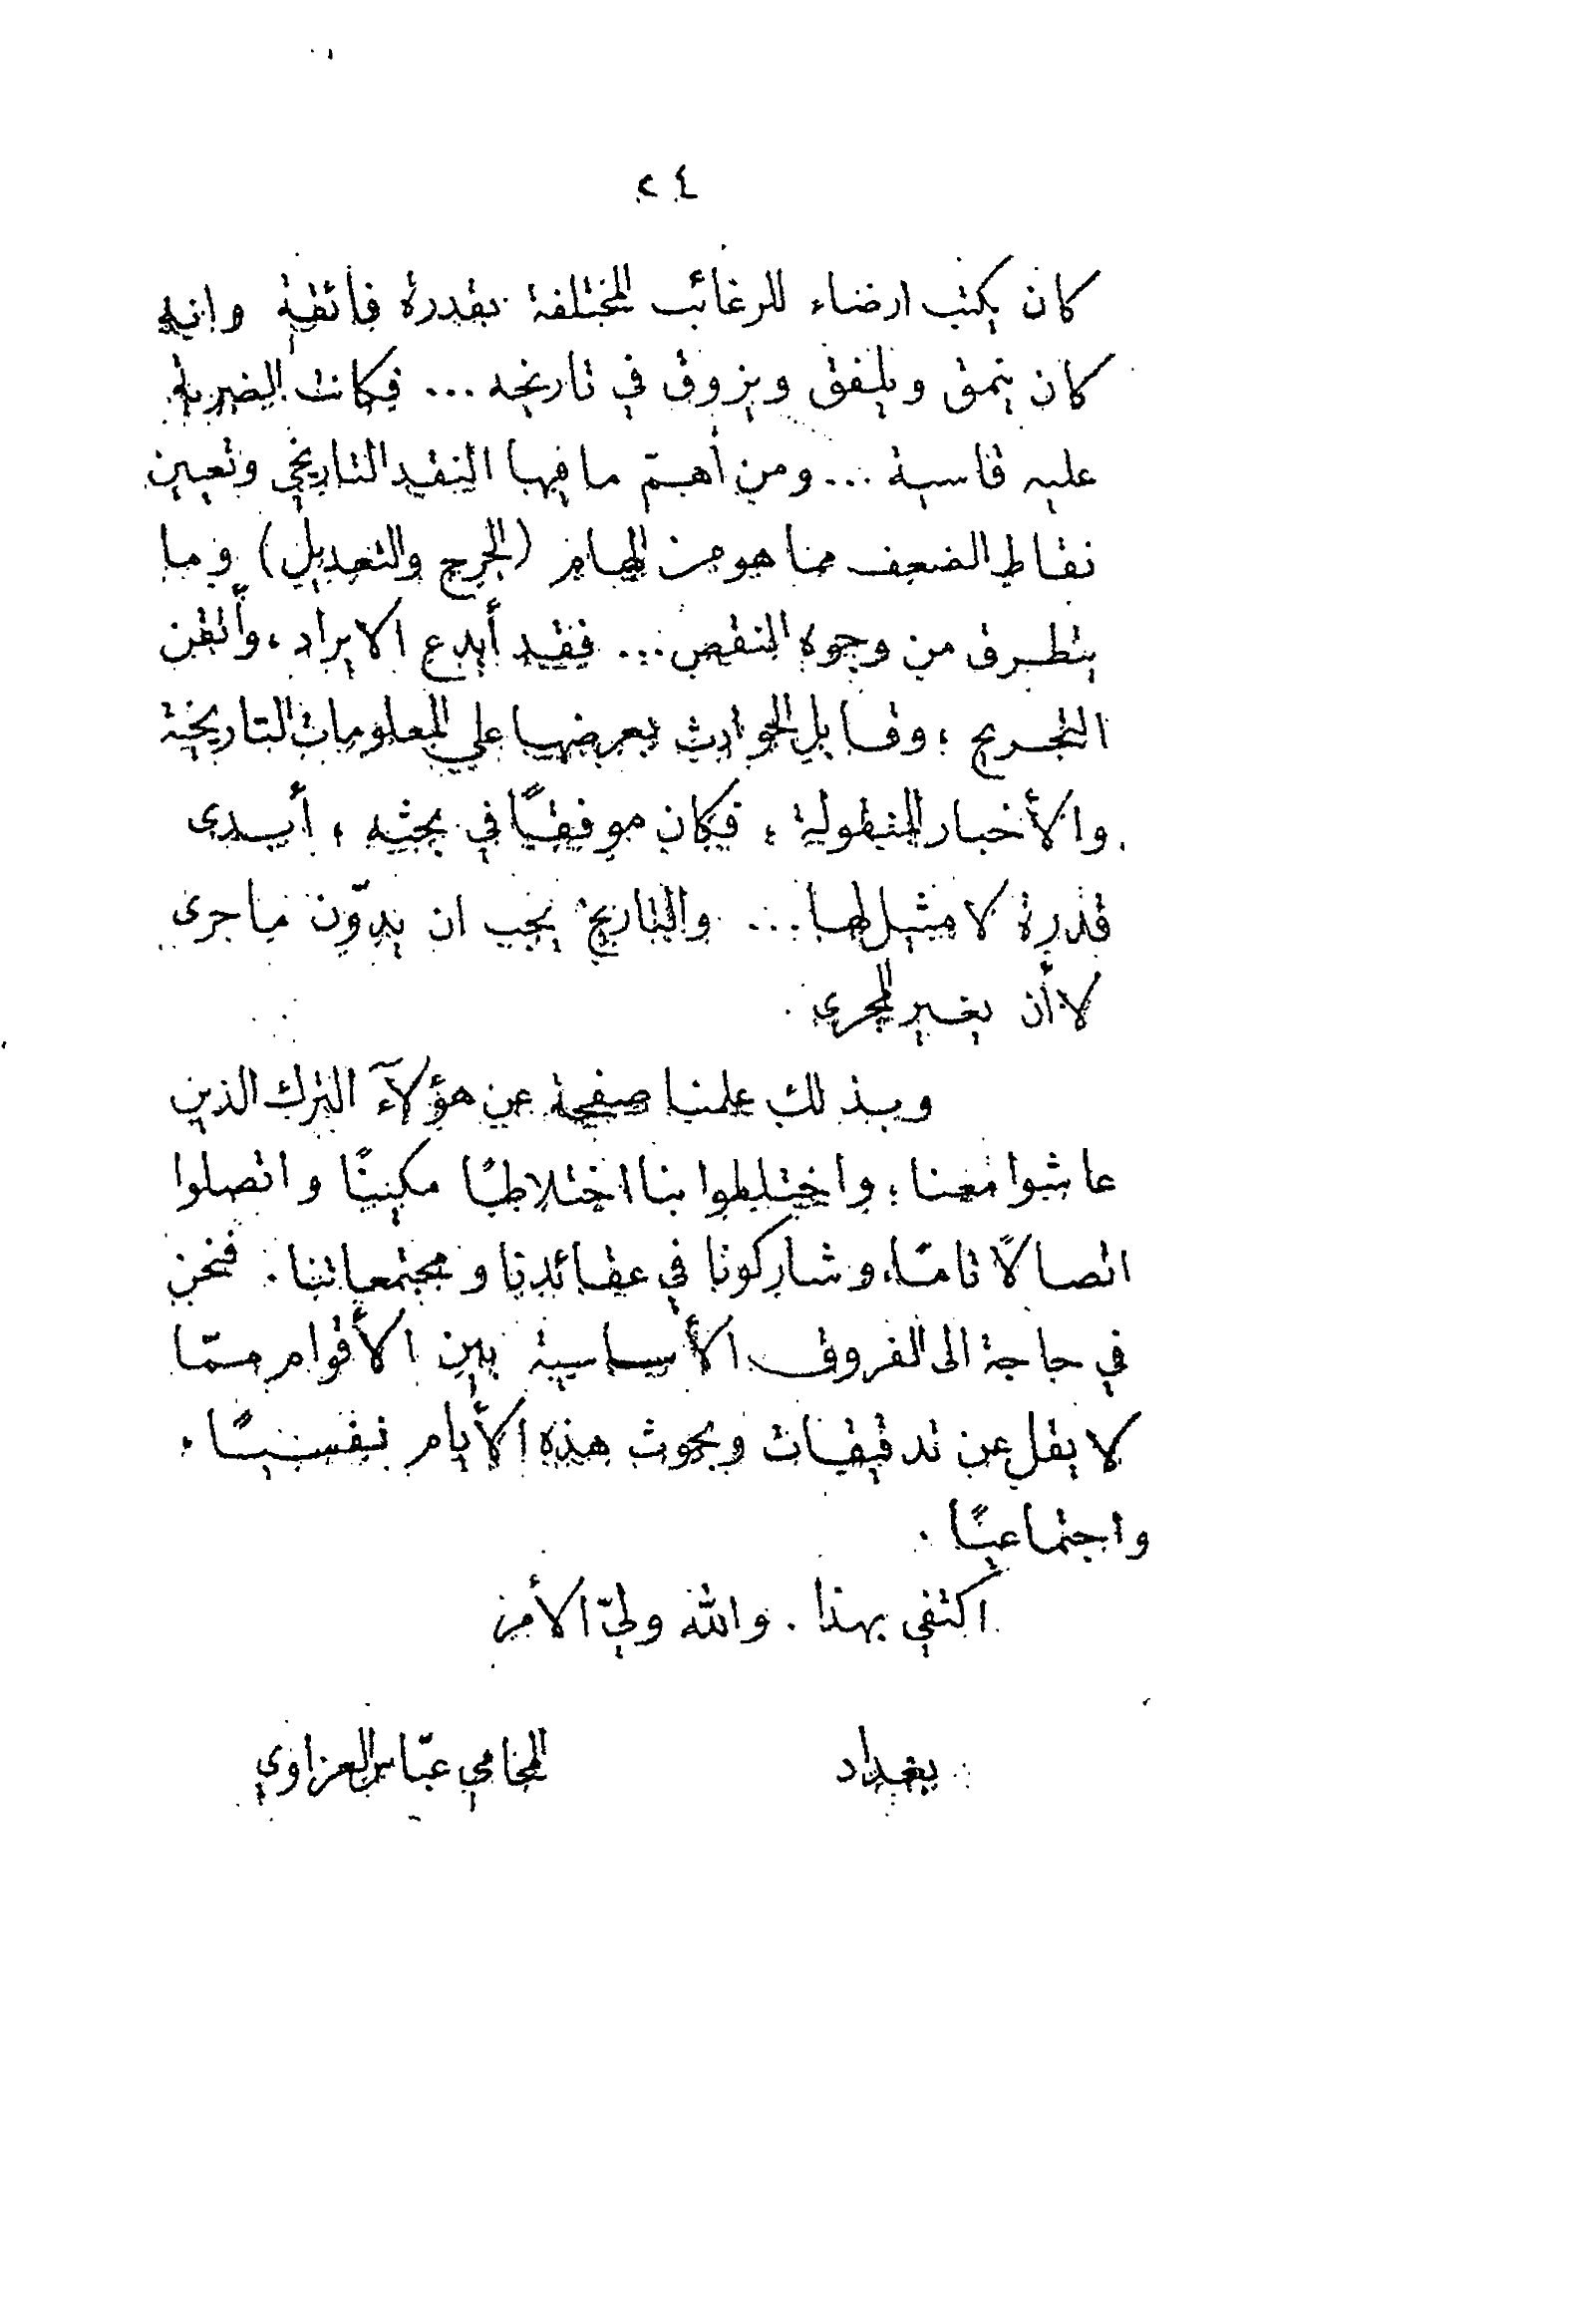 ٢٤
كان يكتب ارضاء للرغائب المختلفة بقدرة فائقة وانه
كان ينمق ويلفق ويزوق في تاريخه ... فكانت الضربة
عليه قاسية ... ومن أهمّ ما فيها النقد التاريخي وتعيين
نقاط الضعف مما هو من إلهام (الجرح والتعديل) وما
يتطرق من وجوه النقص ... فقد أبدع الايراد ، وأتقن
التجريح ، وقابل الحوادث بعرضها علي المعلومات التاريخية
والأخبار المنقولة ، فكان موفقـًا في بحثه ، أبدى
قدرة لا مثيل لها ... والتاريخ يجب ان يدوّن ما جرى
لا أن يغير المجرى .
وبذلك علمنا صفحة عن هؤلآء الترك الذين
عاشوا معنا ، واختلطوا بنا اختلاطـًا مكينـًا واتصلوا
اتصالاً تامـًا، وشاركونا في عقائدنا ومجتمعاتنا . فنحن
في حاجة الى الفروق الأساسية بين الأقوام ممّا
لا يقل عن تدقيقات وبحوث هذه الأيام نفسيـًا ،
واجتماعيـًا .
اكتفي بهذا . والله وليّ الأمر
بغداد المحامي عبّاس العزاوي